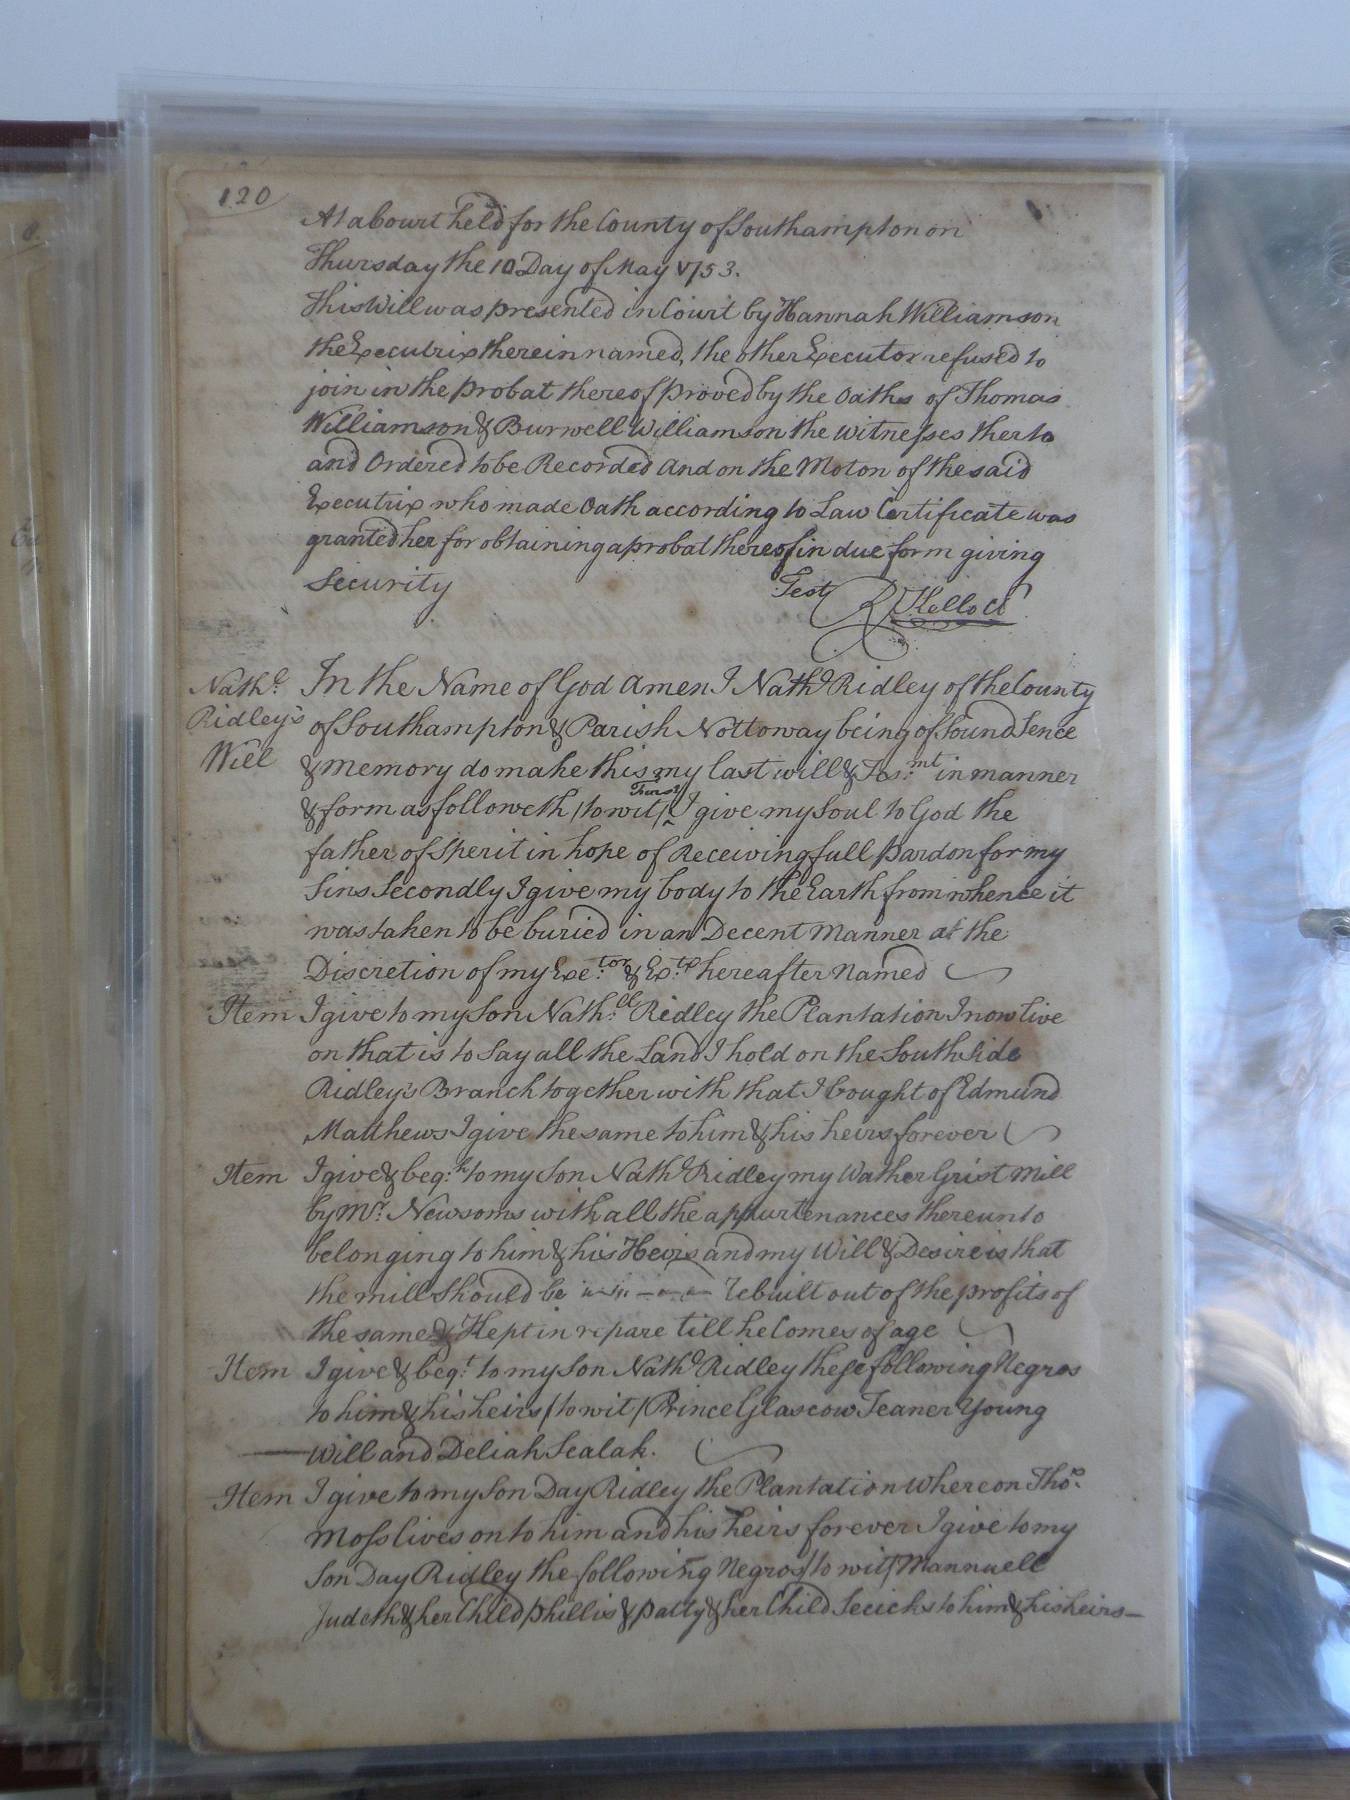 120
At a Court held for the County of Southampton on
Thursday the 10 Day of May 1753.
This Will was presented in Court by Hannah Williamson
the Executrix therein named, the other Executor refused to
join in the probat thereof proved by the Oaths of Thomas
Williamson & Burwell Williamson the witnesses therto
and Ordered to be Recorded And on the Moton of the said
Executrix who made Oath according to Law Certificate was
granted her for obtaining a probat thereof in due form giving
Security Test R Kello Cl
Nathl. Ridley's Will
In the Name of God Amen I Nathl Ridley of the County
of Southampton & Parish Nottoway being of Sound Sence
& memory do make this my last will & Tes:mt in manner
& form as followeth /to wit/ First I give my Soul to God the
father of Sperit in hope of Receiving full pardon for my
Sins Secondly I give my body to the Earth from whence it
was taken to be buried in an Decent Manner at the
Discretion of my Exe:tor & Ex:tx hereafter Named
Item I give to my Son Nath:ll Ridley the Plantation I now live
on that is to Say all the Land I hold on the South Side
Ridley's Branch together with that I bought of Edmund
Matthews I give the same to him & his heirs forever
Item I give & beq:h to my Son Nathl Ridley my Wather Grist Mill
by Mr. Newsoms with all the appurtenances thereunto
belonging to him & his Heirs and my Will & Desire is that
the mill Should be rebuilt out of the profits of
the same & Kept in repare till he Comes of age
Item I give & beq:t to my Son Nathl Ridley these following Negros
to him & his heirs /to wit/ Prince Glascow Teaner Young
Will and Deliah Sealah.
Item I give to my Son Day Ridley the Plantation Whereon Thos:
Moss lives on to him and his heirs forever I give to my
Son Day Ridley the following Negros /to wit/ Mannuell
Judeth & her Child phillis & patty & her Child to him & his heirs